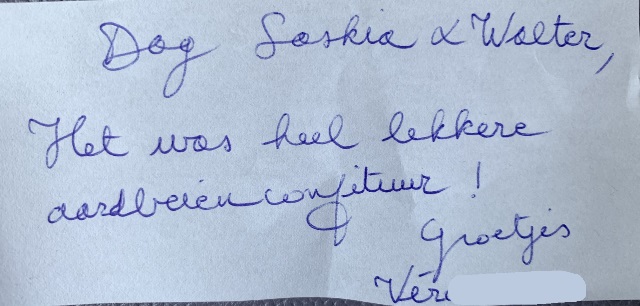 Dag Saskia & Walter,
Het was heel lekkere
aardbeienconfituur !
Groetjes